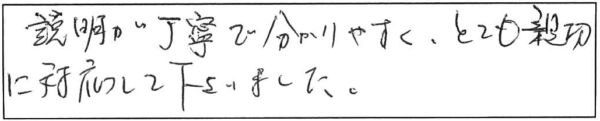 説明が丁寧で分かりやすく、とても親切
に対応して下さいました。